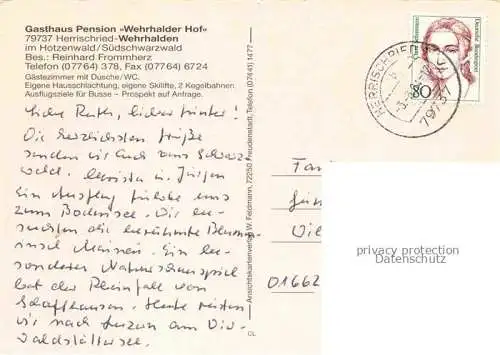 Gasthaus Pension »Wehrhalder Hof«
79737 Herrischried-Wehrhalden
im Hotzenwald/Südschwarzwald
Bes.: Reinhard Frommherz
Telefon (07764) 378, Fax (07764) 6724
Gästezimmer mit Dusche/WC.
Eigene Hausschlachtung, eigene Skilifte, 2 Kegelbahnen.
Ausflugsziele für Busse – Prospekt auf Anfrage.
Liebe Ruth, lieber Günter!
Die herzlichsten Grüße
senden wir Euch vom Schwarz-
wald. Christa u. Jürgen
Ein Ausflug führte uns
zum Bodensee. Wir be-
suchten die berühmte Blumen-
insel Mainau. Ein be-
sonderes Naturschauspiel
bot der Rheinfall von
Schaffhausen. Heute reisten
wir nach Luzern am Vier-
waldstättersee.
Ansichtskartenverlag W. Feldmann, 72250 Freudenstadt, Telefon (07441) 1477
CL
Deutsche Bundespost
80
HERRISCHRIED
79737
Fam
01662
privacy protection
Datenschutz